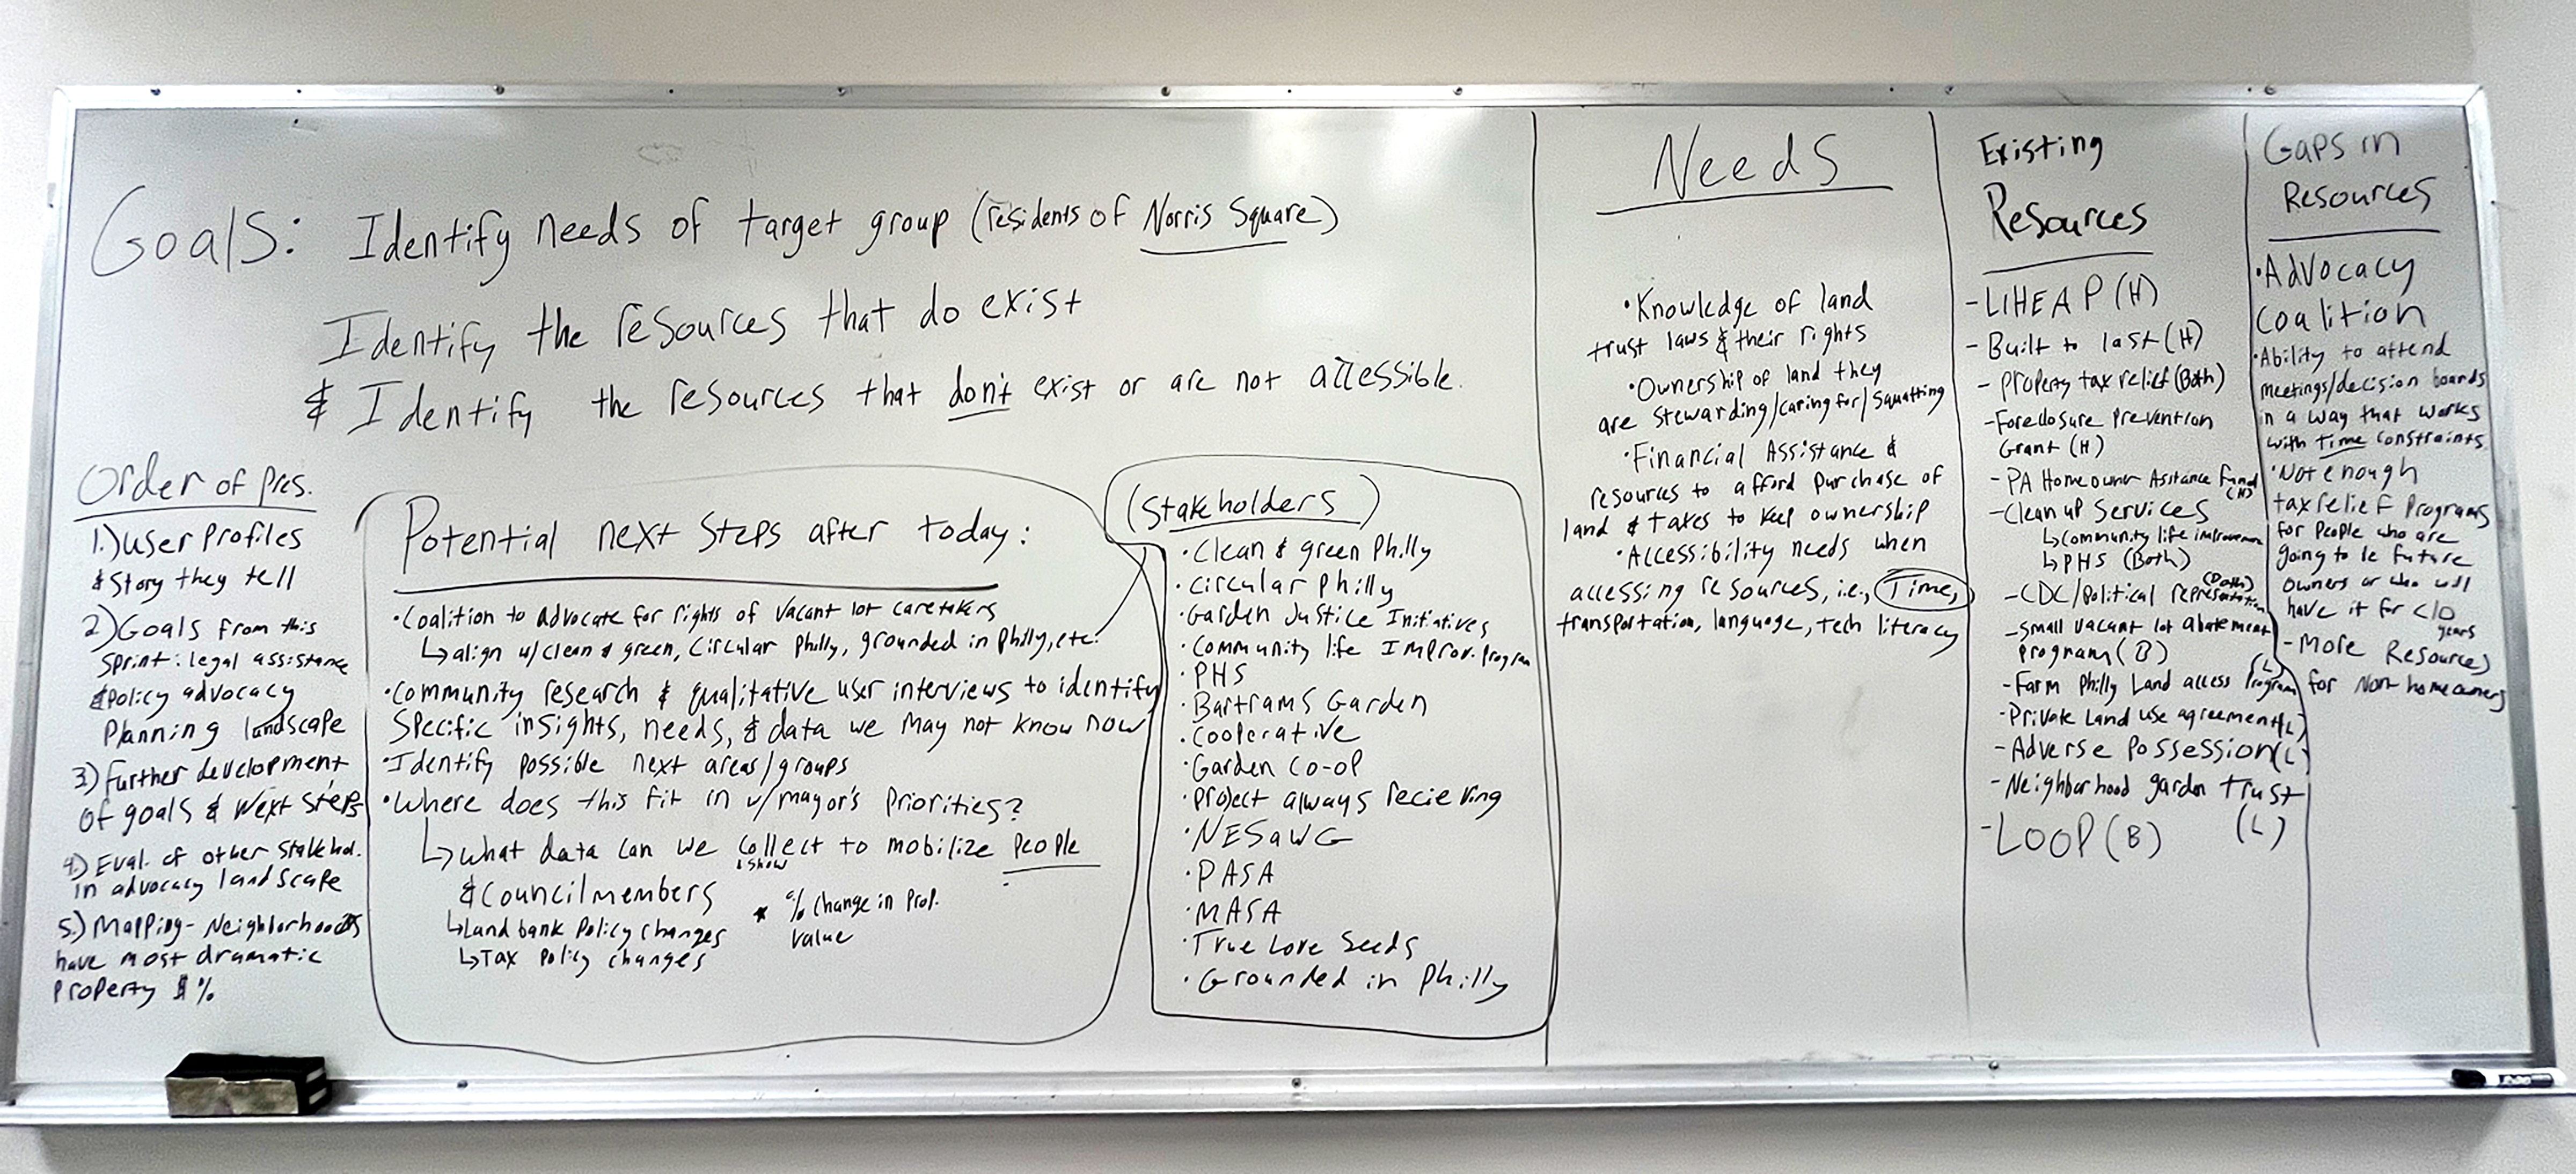 Goals: Identify needs of target group (residents of Norris Square)
Identify the resources that do exist
& Identify the resources that don't exist or are not accessible.
Order of pres.
1.) User Profiles
& Story they tell
2.) Goals from this
sprint: legal assistance
& policy advocacy
Planning landscape
3.) Further development
of goals & Next steps
4.) Eval. of other stakehol.
in advocacy landscape
5.) Mapping - Neighborhoods
have most dramatic
Property $ %
Potential next steps after today:
• Coalition to advocate for rights of vacant lot caretakers
↳ align w/ clean & green, Circular Philly, grounded in Philly, etc.
• Community research & qualitative user interviews to identify
specific insights, needs, & data we may not know now
• Identify possible next areas/groups
• Where does this fit in w/ mayor's priorities?
↳ what data can we collect to mobilize people
& show
& Councilmembers
↳ Land bank policy changes
↳ Tax policy changes
* % change in prop.
value
(Stakeholders)
• Clean & green Philly
• Circular Philly
• Garden Justice Initiatives
• Community life Improv. program
• PHS
• Bartrams Garden
• Cooperative
• Garden co-op
• Project always recieving
• NESaWG
• PASA
• MASA
• True Love Seeds
• Grounded in Philly
Needs
• Knowledge of land
trust laws & their rights
• Ownership of land they
are stewarding/caring for/squatting
• Financial Assistance &
resources to afford purchase of
land & taxes to keep ownership
• Accessibility needs when
accessing resources, i.e., Time,
transportation, language, tech literacy
Existing
Resources
- LIHEAP (H)
- Built to last (H)
- Property tax relief (Both)
- Foreclosure Prevention
Grant (H)
- PA Homeowner Assitance Fund
(H)
- Clean up Services
↳ Community life improvement
↳ PHS (Both)
- CDC/Political representation
(Both)
- Small vacant lot abatement
program (B)
- Farm Philly Land access Program
(L)
- Private Land use agreement (L)
- Adverse Possession (L)
- Neighborhood garden trust
(L)
- LOOP (B)
Gaps in
Resources
• Advocacy
Coalition
• Ability to attend
meetings/decision boards
in a way that works
with time constraints
• Not enough
tax relief programs
for people who are
going to be future
owners or who will
have it for <10
years
- More Resources
for Non-homeowners